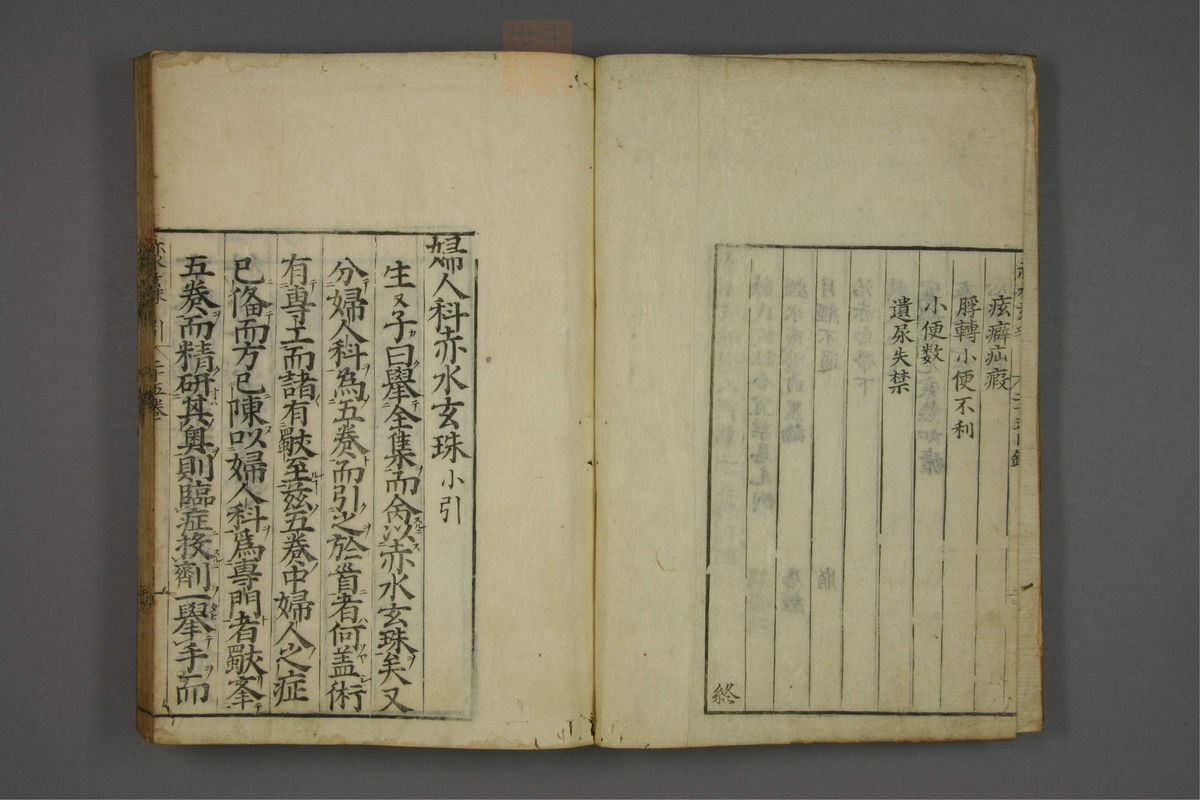 痃癖疝瘕
脬轉小便不利
小便數
遺尿失禁
終
婦人科赤水玄珠小引
生生子曰舉全集而命以赤水玄珠矣又
分婦人科為五卷而引之於首者何蓋術
有專工而諸有歝至茲五卷中婦人之症
已俻而方已陳以婦人科爲專門者歝峯
五卷而精研其奧則臨症投劑一舉手而